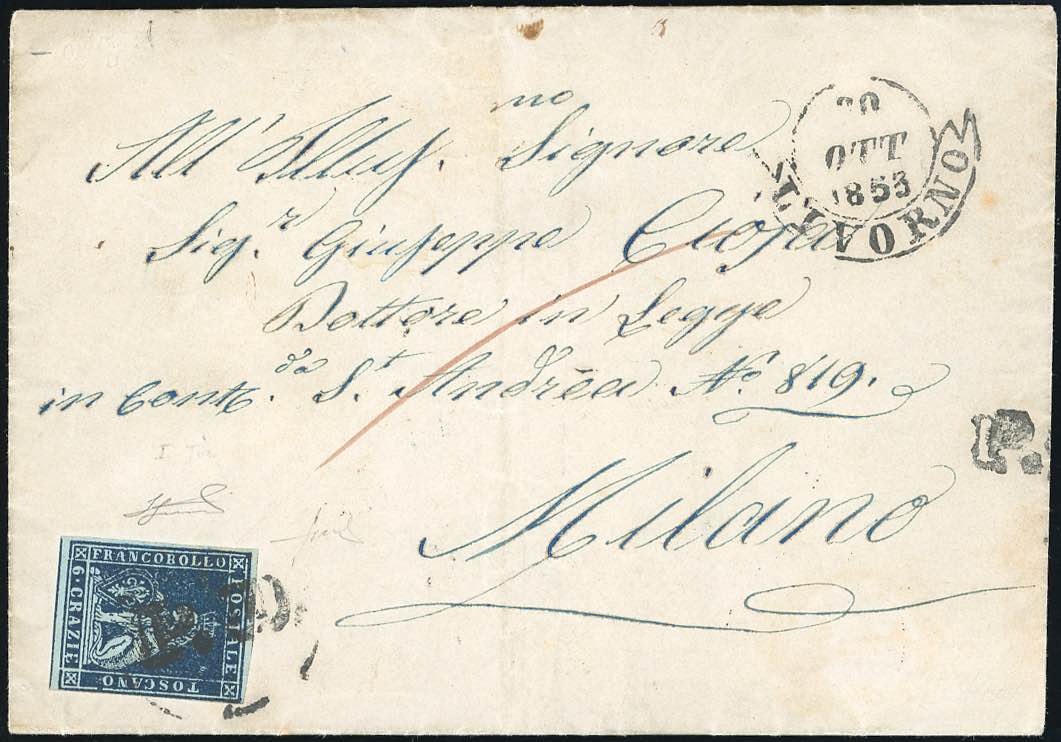 All' Illus. mo Signore
Sig.r Giuseppe
Dottore in Legge
in Cont.da S.t Andrea No 819.
Milano
20
OTT
1853
LIVORNO
P.
FRANCOBOLLO
POSTALE
TOSCANO
6·CRAZIE
P.D.